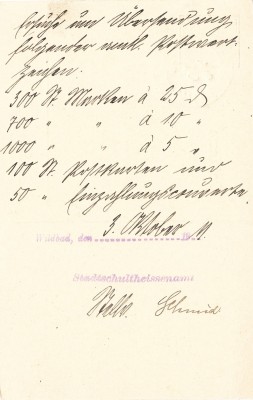 Ersuche um Übersendung
folgender amtl. Postwert-
zeichen:
300 St. Marken à 25 ₰
700 " " à 10 "
1000 " " à 5 "
100 St. Postkarten und
50 " Einzahlungscouverte.
Wildbad, den 3. Oktober 19 11
Stadtschultheissenamt
Stellv. Schmid